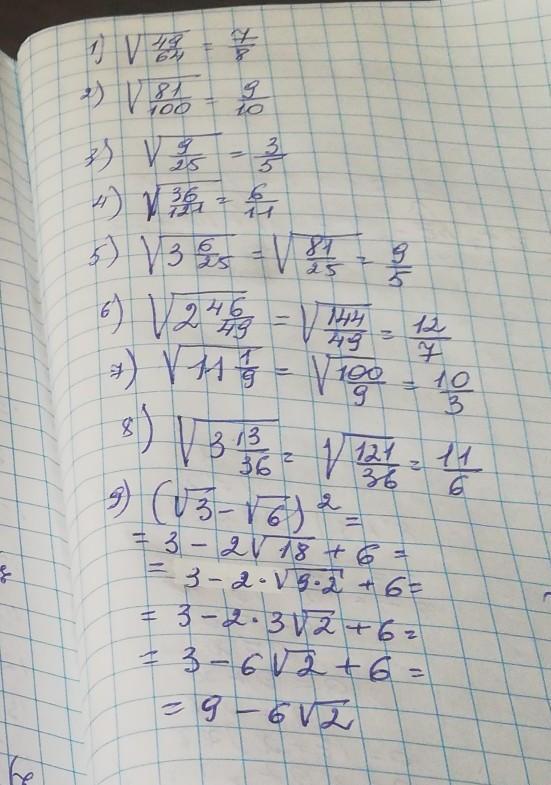 1) √49/64 = 7/8
2) √81/100 = 9/10
3) √9/25 = 3/5
4) √36/121 = 6/11
5) √3 6/25 = √81/25 = 9/5
6) √2 46/49 = √144/49 = 12/7
7) √11 1/9 = √100/9 = 10/3
8) √3 13/36 = √121/36 = 11/6
9) (√3 - √6)² =
= 3 - 2√18 + 6 =
= 3 - 2·√9·2 + 6 =
= 3 - 2·3√2 + 6 =
= 3 - 6√2 + 6 =
= 9 - 6√2